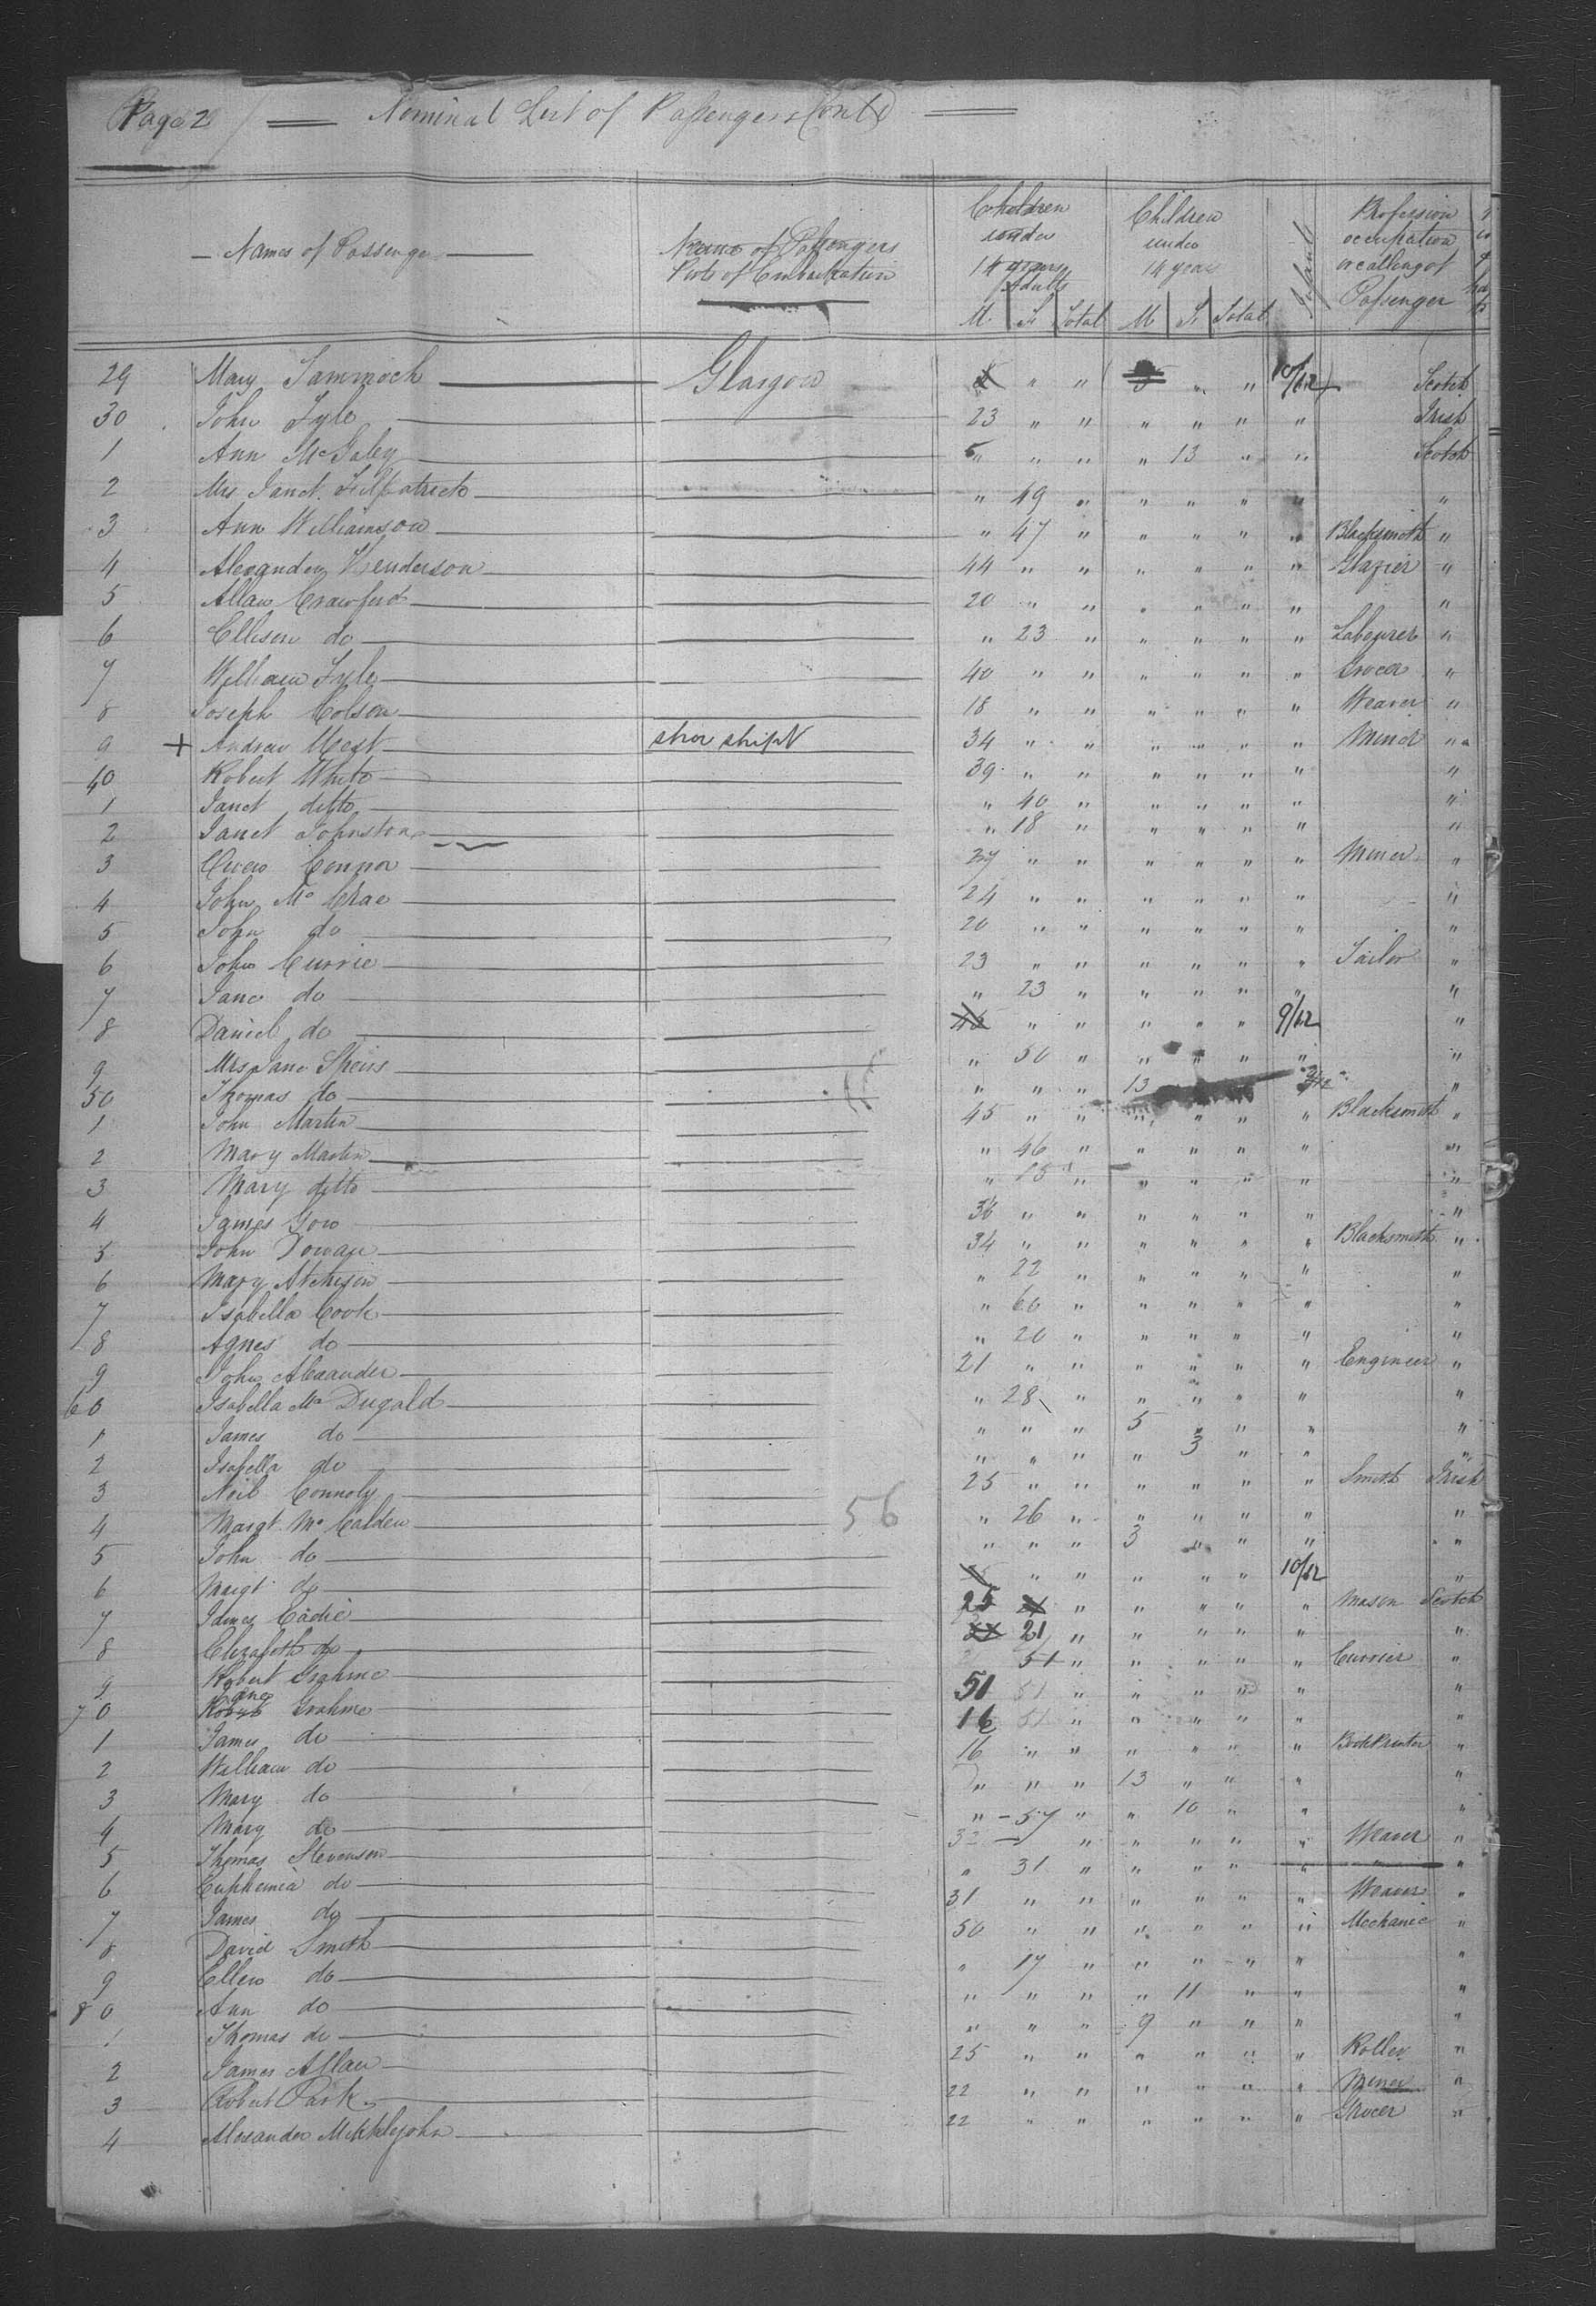 Page 2 Nominal List of Passengers Contd
Names of Passenger
Name of Passengers
Port of Embarkation
Children under 14 years Adults M F Total
Children under 14 years M F Total
Infant
Profession occupation or calling of Passenger
29 Mary Jammoch Glasgow " " " " 10/12 Scotch
30 John Lyle 23 " " " " " " Irish
1 Ann Mc " " " " 13 " " Scotch
2 Mrs Janet Kilpatrick " 49 " " " " " "
3 Ann Williamson " 47 " " " " " Blacksmith "
4 Alexander Henderson 44 " " " " " " Glazier "
5 Allan Crawford 20 " " " " " " "
6 Ellison do " 23 " " " " " Labourer "
7 William Lyle 40 " " " " " " Grocer "
8 Joseph Colson 18 " " " " " " Weaver "
9 + Andrew West shipt 34 " " " " " " Miner "
40 Robert White 39 " " " " " " "
1 Janet ditto " 40 " " " " " "
2 Janet Johnston " 18 " " " " " "
3 Owen Connor 27 " " " " " " Miner "
4 John Mc Crae 24 " " " " " " "
5 John do 20 " " " " " " "
6 John Currie 23 " " " " " " Tailor "
7 Jane do " 23 " " " " " "
8 Daniel do " " " " " 9/12 "
9 Mrs Jane Speirs " 50 " " " " " "
50 Thomas do " " " 13 "
1 John Martin 45 " " " " " " Blacksmith "
2 Mary Martin " 46 " " " " " "
3 Mary ditto " 15 " " " " " "
4 James Gow 36 " " " " " " "
5 John Dowan 34 " " " " " " Blacksmith "
6 Mary Atchison " 22 " " " " " "
7 Isabella Cook " 60 " " " " " "
8 Agnes do " 20 " " " " " "
9 John Alexander 21 " " " " " " Engineer "
60 Isabella Mc Dugald " 28 " " " " " "
1 James do " " " 5 " " " "
2 Isabella do " " " " 3 " " "
3 Neil Connoly 25 " " " " " " Smith Irish
4 Margt Mc Calden 56 " 26 " " " " " "
5 John do " " " 3 " " " "
6 Margt do " " " " " 10/12 "
7 James Eadie 25 " " " " " Mason Scotch
8 Elizabeth do 21 " " " " " "
9 Robert Grahme 51 " " " " " Currier "
70 Robert Jane Grahme 51 51 " " " " " "
1 James do 16 51 " " " " " "
2 William do 16 " " " " " " Book Printer "
3 Mary do " " " 13 " " " "
4 Mary do " 57 " " 10 " " "
5 Thomas Stevenson 32 " " " " " Weaver "
6 Euphemia do " 31 " " " " " "
7 James do 31 " " " " " " Weaver "
8 David Smith 50 " " " " " " Mechanic "
9 Ellen do " 17 " " " " " "
80 Ann do " " " " 11 " " "
1 Thomas do " " " 9 " " " "
2 James Allan 25 " " " " " " Roller "
3 Robert Park 22 " " " " " " Miner "
4 Alexander Micklejohn 22 " " " " " " Grocer "